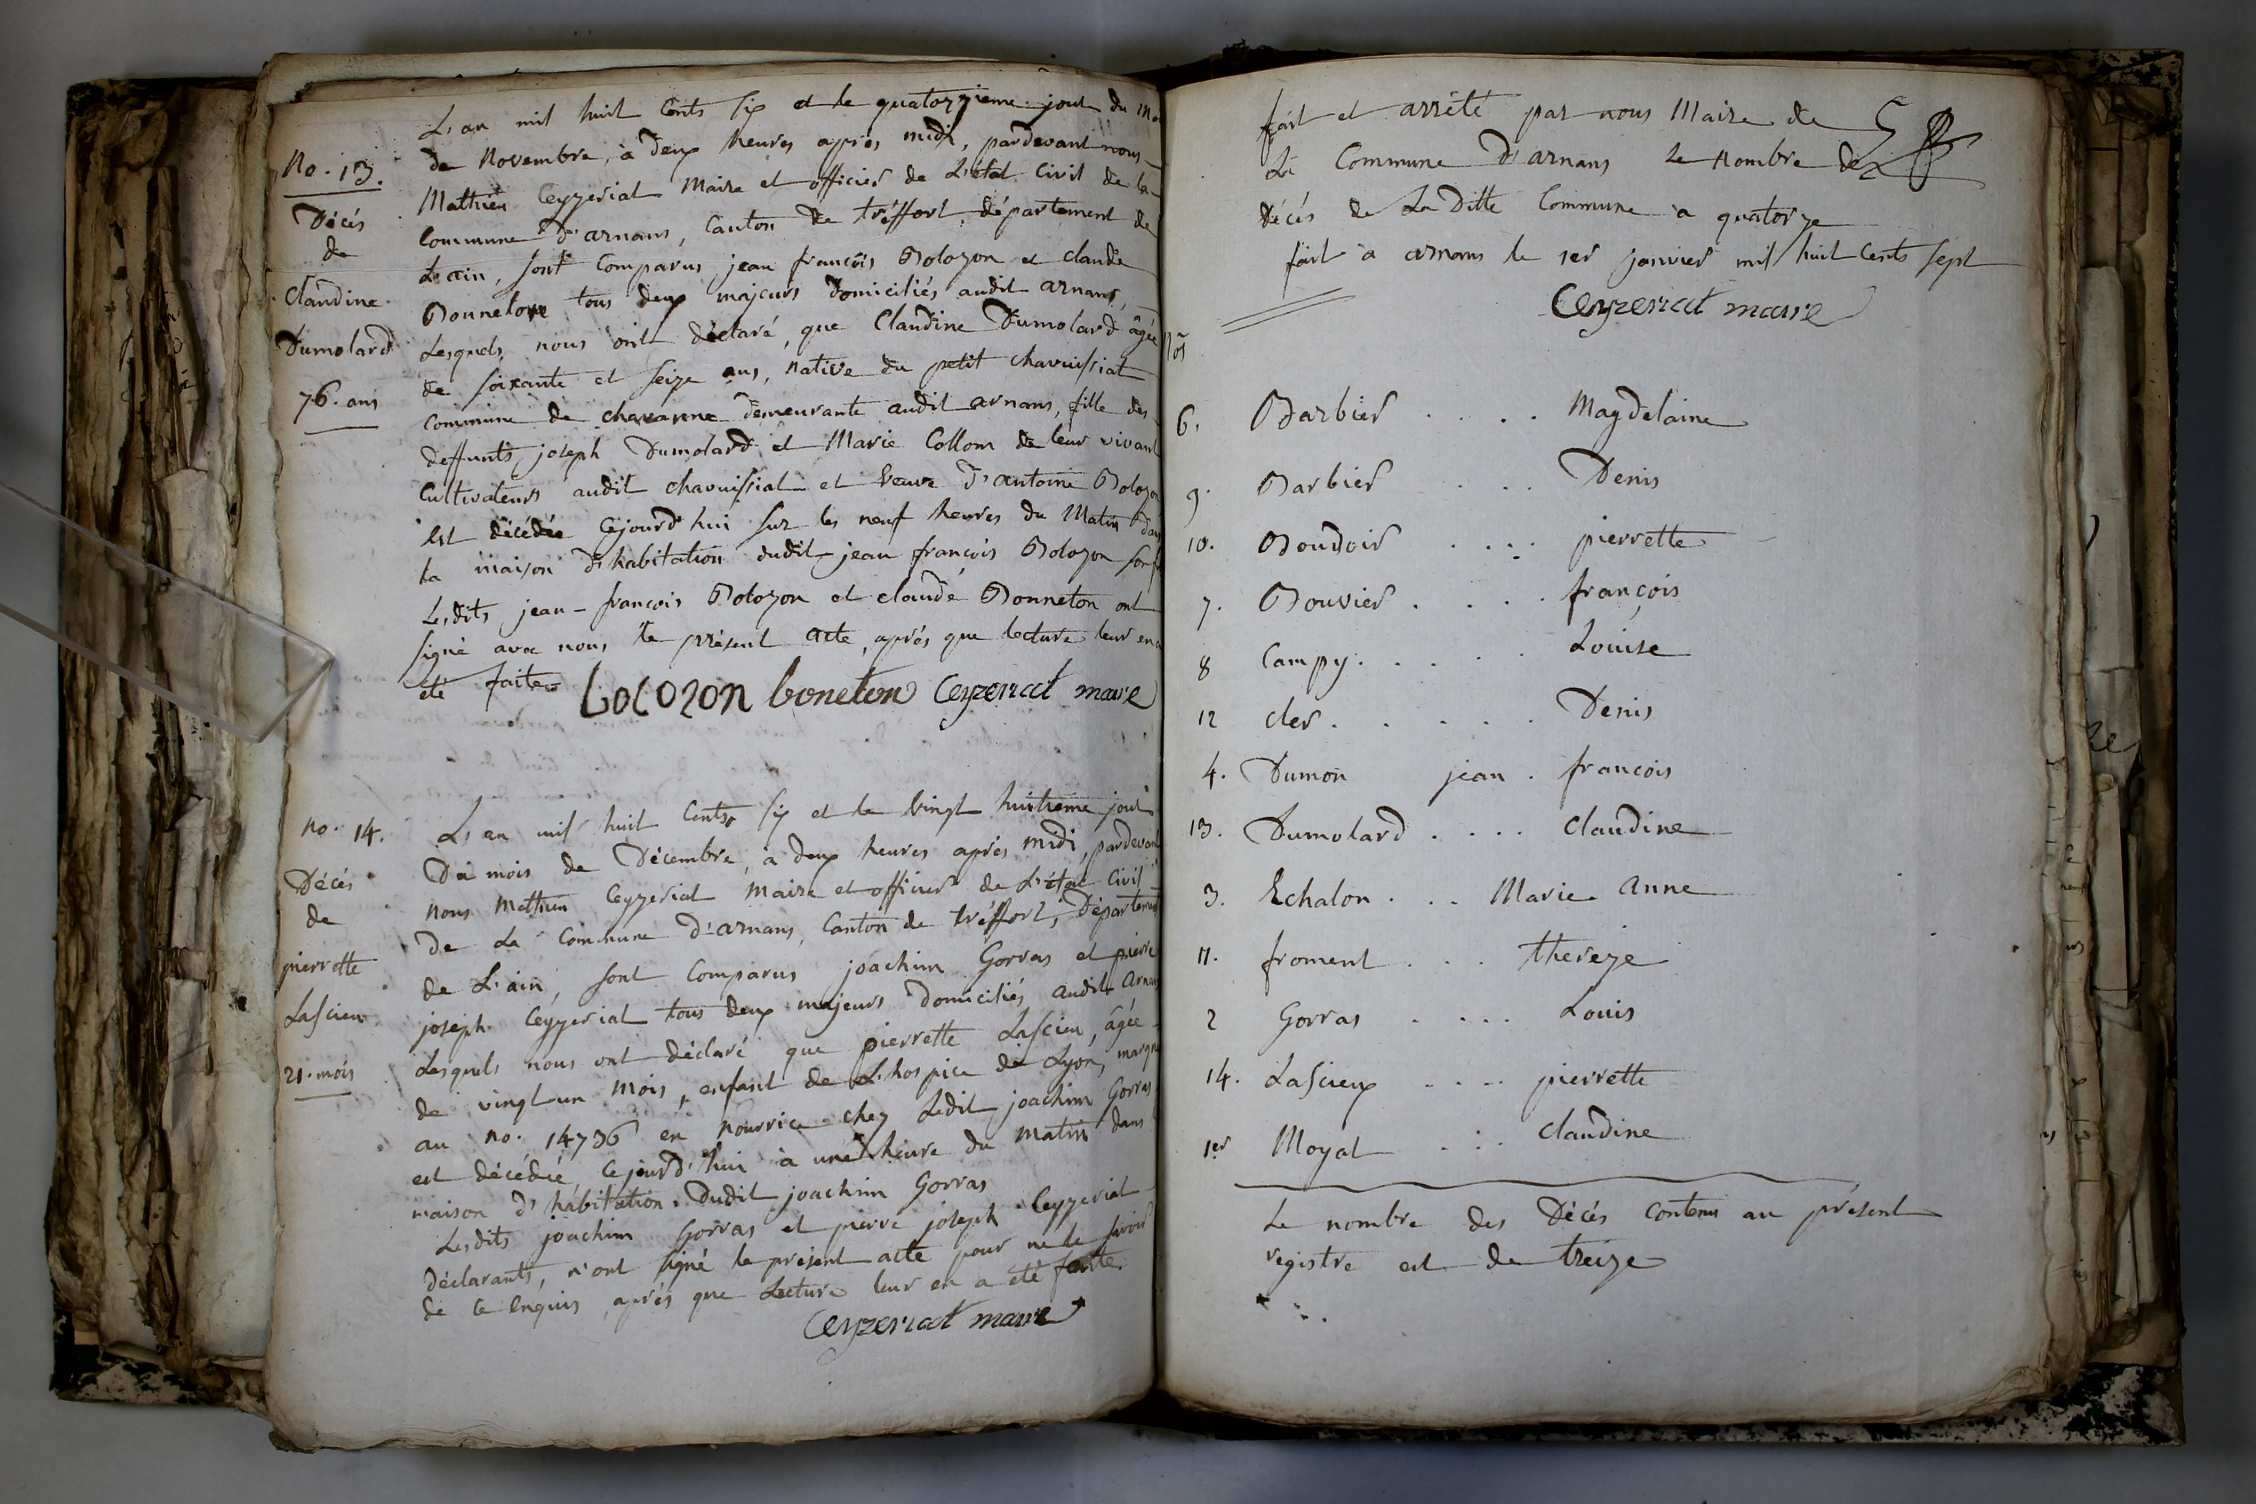 No. 13.
Décés
de
Claudine
Dumolard
76. ans
L'an mil huit Cents six et le quatorzieme jour du mo
de Novembre, à deux heures après midi, pardevant nous
Mathieu Ceyzeriat Maire et officier de L'état Civil de la
Commune d'arnans, Canton de tréffort, département de
L'ain, sont Comparus jean françois Bolozon et claude
Bonneton tous deux majeurs domiciliés audit arnans,
Lesquels nous ont déclaré, que Claudine Dumolard âgée
de soixante et seize ans, native du petit chavuissiat
commune de chavanne demeurante audit arnans, fille des
deffunts joseph Dumolard et Marie Collom de leur vivant
Cultivateurs audit chavuissiat et veuve d'antoine Bolozon
est décédée Cejourd'hui sur les neuf heures du Matin dans
la maison d'habitation dudit jean françois Bolozon son fi
Lesdits jean-françois Bolozon et claude Bonneton ont
signé avec nous le présent acte, après que lecture leur en a
été faite
bolozon boneton Ceyzeriat maire
no. 14.
Décés
de
pierrette
Lascieux
21. mois
L'an mil huit Cents six et le vingt huitieme jour
Du mois de Décembre, a deux heures après midi, pardevant
nous Mathieu Ceyzeriat Maire et officier de L'état Civil
de La Commune d'arnans, Canton de tréffort, Département
de L'ain, sont Comparus joachim Gorras et pierre
joseph Ceyzeriat tous deux majeurs domiciliés audit arnans
Lesquels nous ont déclaré que pierrette Lascieu, âgée
de vingt un mois, enfant de L'hospice de Lyon, marqué
au no. 14736 en nourrice chez Ledit joachim Gorras
est décédée, Cejourd'hui à une heure du matin dans
maison d'habitation dudit joachim Gorras
Lesdits joachim Gorras et pierre joseph Ceyzeriat
déclarants, n'ont signé le présent acte pour ne le savoir
de ce Enquis, après que Lecture leur en a été faite.
Ceyzeriat maire
fait et arrêté par nous Maire de
La Commune d'arnans Le Nombre de
décés de La ditte Commune a quatorze
fait à arnans le 1er janvier mil huit Cents sept
Ceyzeriat maire
nos
6. Barbier .... Magdelaine
9. Barbier .... Denis
10. Boudoir .... pierrette
7. Bouvier .... françois
8 Campy ..... Louise
12 cler ..... Denis
4. Dumon jean . françois
13. Dumolard .... claudine
3. Echalon ... Marie Anne
11. froment ... thereze
2 Gorras .... Louis
14. Lascieux .... pierrette
1er Moyat ... claudine
Le nombre des Décés Contenu au présent
registre est de treize